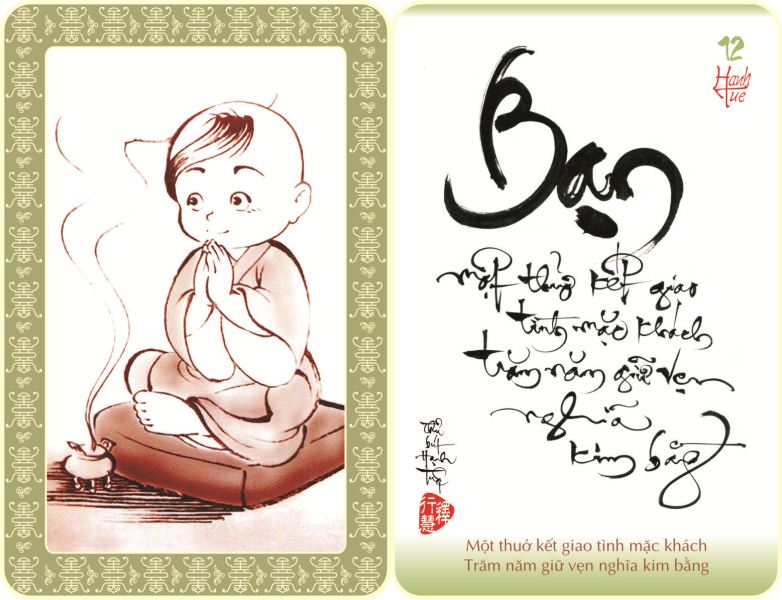 12
Hạnh
Huệ
Bạn
một thuở kết giao
tình mặc khách
trăm năm giữ vẹn
nghĩa
kim bằng
Thủ
bút
Hạnh
Tuệ
行釋
慧
Một thuở kết giao tình mặc khách
Trăm năm giữ vẹn nghĩa kim bằng